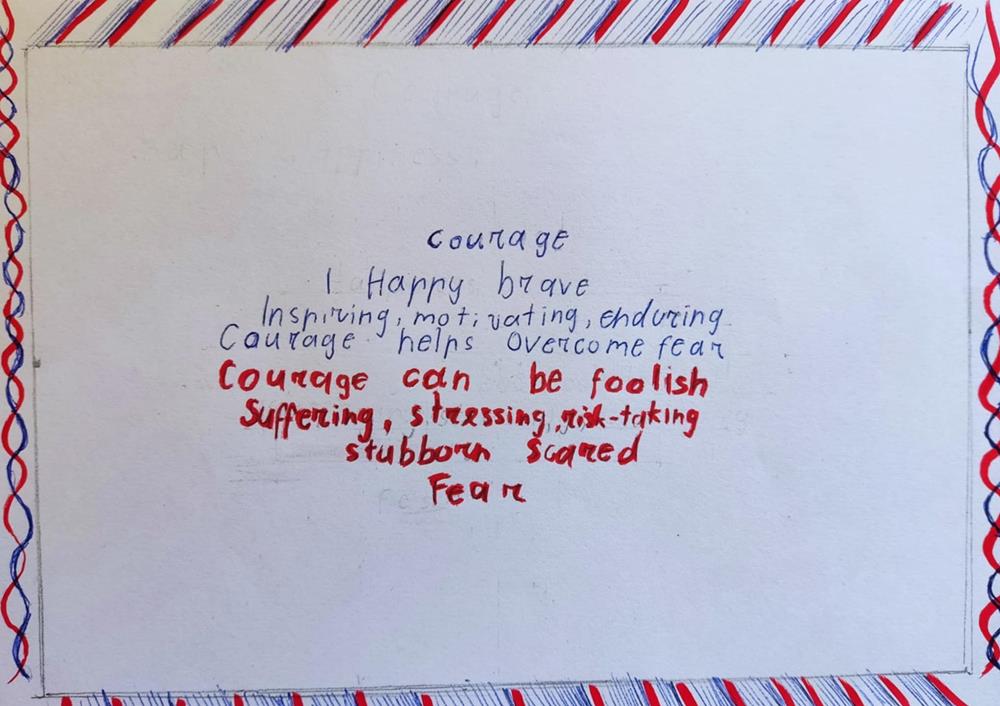 courage
I Happy brave
Inspiring, motivating, enduring
Courage helps overcome fear
Courage can be foolish
Suffering, stressing, risk-taking
stubborn scared
Fear